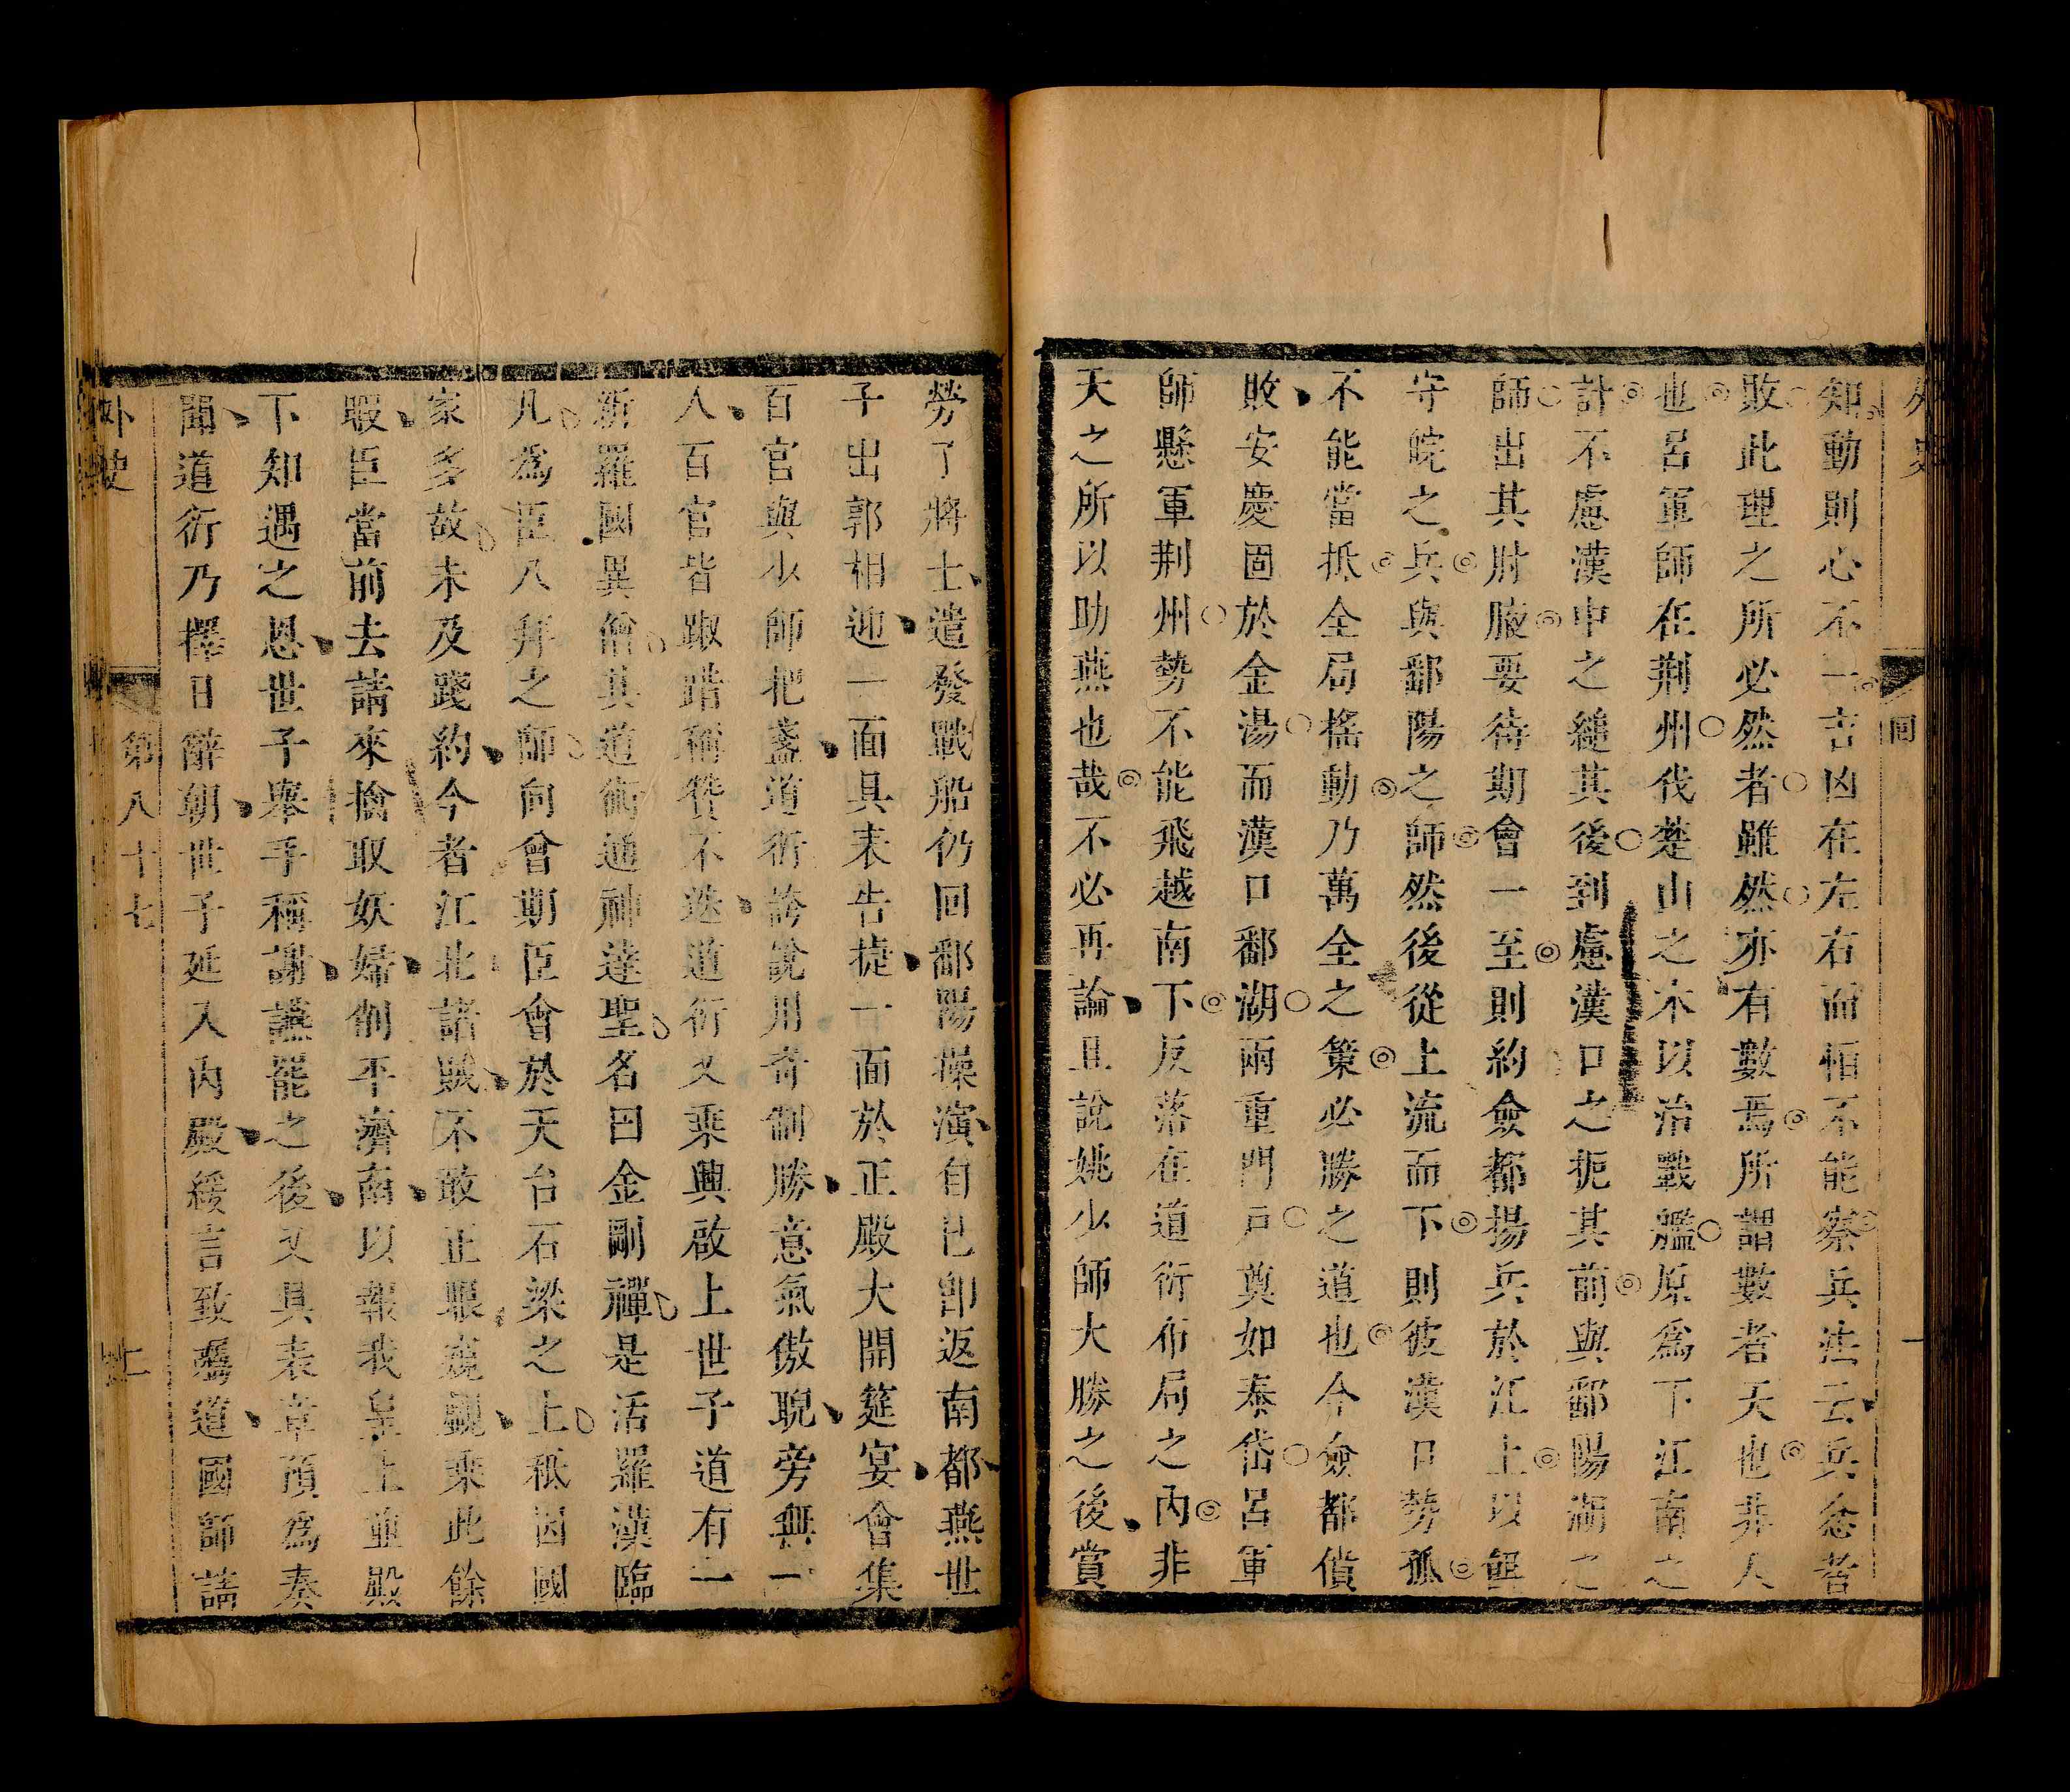 知動則心不一吉凶在左右而怕不能察兵法云兵忿者
敗此理之所必然者雖然亦有數焉所謂數者天也非人
也呂軍師在荆州伐楚山之木以治戰艦原為下江南之
計不慮漢中之縋其後到慮漢口之扼其前與鄱陽湖之
師出其肘腋要待期會一至則約僉都揚兵於江上以
守皖之兵與鄱陽之師然後從上流而下則彼漢口勢孤
不能當抵全局搖動乃萬全之策必勝之道也今僉都僨
敗安慶固於金湯而漢口鄱湖兩重門戸奠如泰岱呂軍
師懸軍荆州勢不能飛越南下反落在道衍布局之內非
天之所以助燕也哉不必再論且說姚少師大勝之後賞
勞了將士遣發戰船仍回鄱陽操演自已卽返南都燕世
子出郭相迎一面具表告捷一面於正殿大開筵宴會集
百官與少師把盞道衍誇說用奇制勝意氣傲睨旁無一
人百官皆踧踖稱贊不迭道衍又乘興啟上世子道有一
新羅國異僧其道術通神達聖名曰金剛禪是活羅漢臨
凡為臣八拜之師向會期臣會於天台石梁之上秪因國
家多故未及踐約今者江北諸賊不敢正眼窺覷乘此餘
暇臣當前去請來擒取妖婦削平濟南以報我皇上並殿
下知遇之恩世子舉手稱謝讌罷之後又具表章預為奏
聞道衍乃擇日辭朝世子延入內殿緩言致囑道國師請
外史
第八十七
回
二